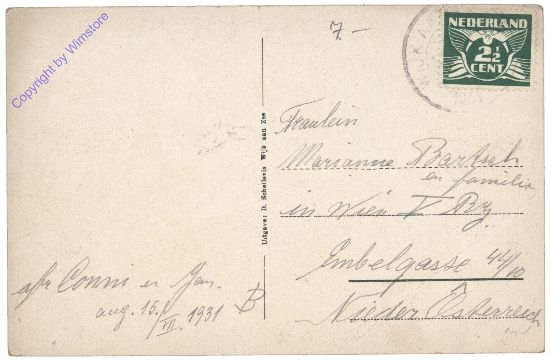 Copyright by Wimstore
7-
NEDERLAND
2½
CENT
Uitgave: D. Schellevis Wijk aan Zee
Fraulein
Marianne Bartsch
en familie
in Wien V Bz.
Embelgasse 44/10
Nieder Österreich
Conni en Jan.
aug. 15/VII. 1931